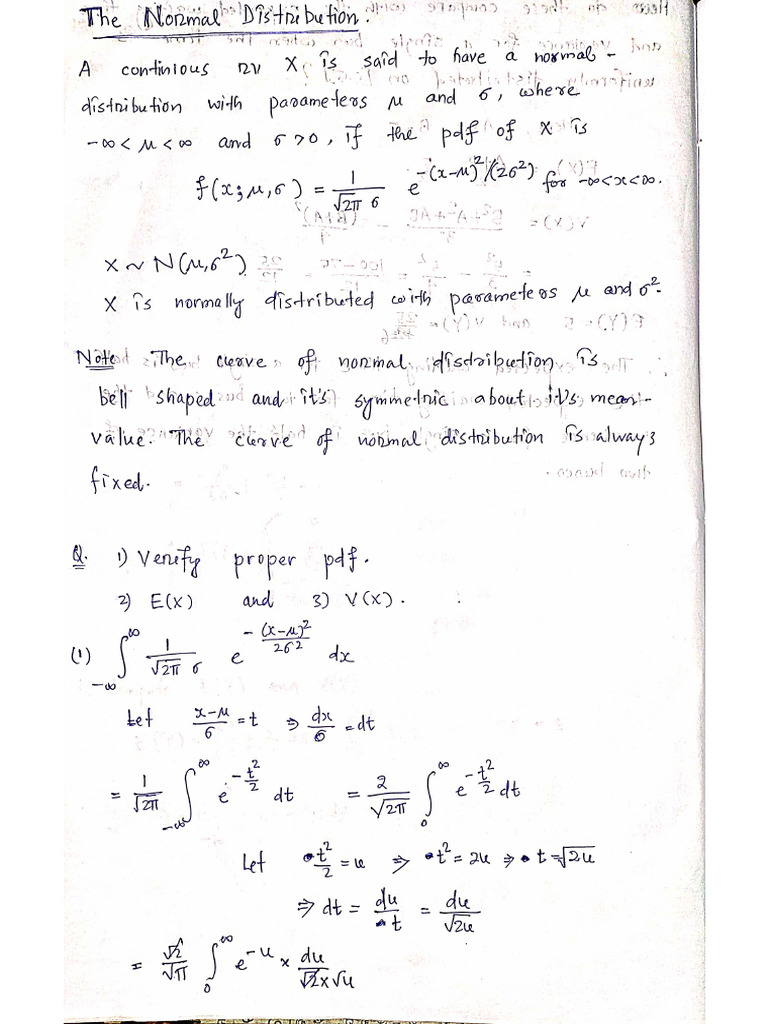 The Normal Distribution.
A continious rv X is said to have a normal-
distribution with parameters μ and σ, where
-∞ < μ < ∞ and σ > 0, if the pdf of X is
f(x; μ, σ) = 1/(√2π σ) e^{-(x-μ)²/(2σ²)} for -∞<x<∞.
X ~ N(μ, σ²).
X is normally distributed with parameters μ and σ².
Note The curve of normal distribution is
bell shaped and it's symmetric about it's mean-
value. The curve of normal distribution is always
fixed.
Q. 1) Verify proper pdf.
2) E(X) and 3) V(X).
(1) ∫_{-∞}^{∞} 1/(√2π σ) e^{-(x-μ)²/2σ²} dx
Let (x-μ)/σ = t ⇒ dx/σ = dt
= 1/√2π ∫_{-∞}^{∞} e^{-t²/2} dt = 2/√2π ∫_0^∞ e^{-t²/2} dt
Let t²/2 = u ⇒ t² = 2u ⇒ t = √2u
⇒ dt = du/t = du/√2u
= √2/√π ∫_0^∞ e^{-u} × du/(√2 × √u)